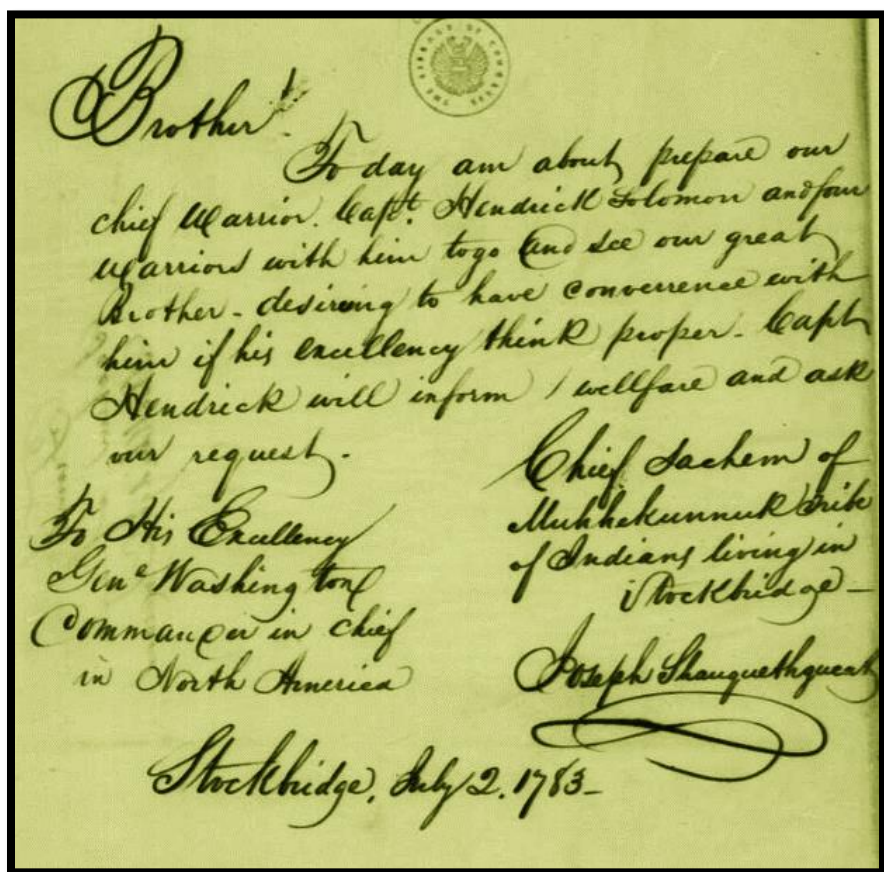 THE LIBRARY OF CONGRESS
Brother!
To day am about prepare our
chief Warrior. Capt. Hendrick Solomon and four
Warriors with him to go and see our great
Brother - desireing to have converrence with
him if his excellency think proper - Capt
Hendrick will inform / wellfare and ask
our request.
To His Excellency
Gen.e Washington
Commander in chief
in North America
Chief Sachem of
Muhhekunnuk Tribe
of Indians living in
Stockbridge -
Joseph Shauquethqueat
Stockbridge, July 2. 1783 -